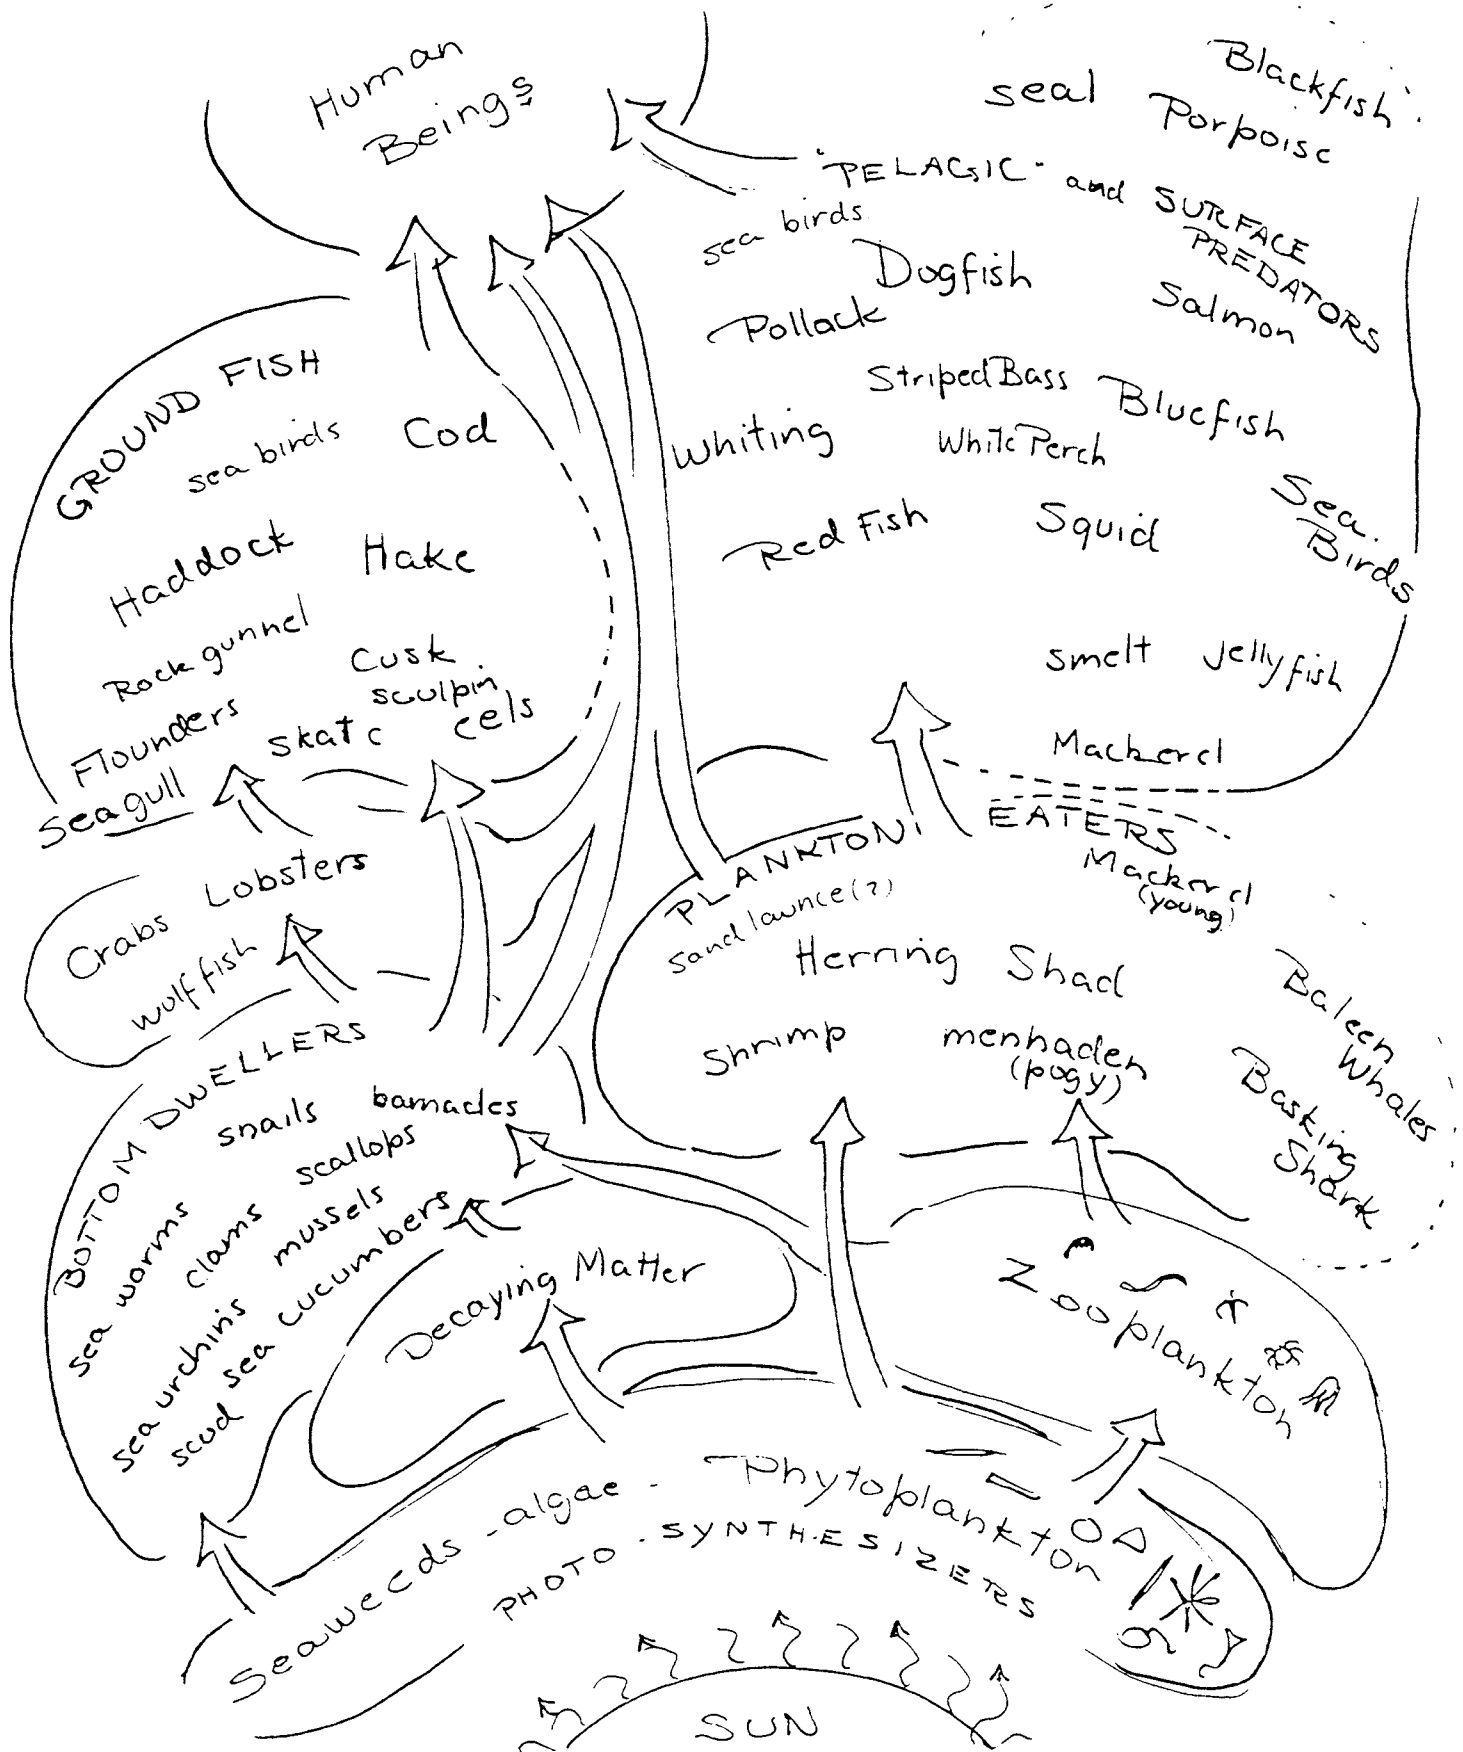 Human
Beings
Blackfish
seal
Porpoise
"PELAGIC" and SURFACE
PREDATORS
sea birds
Dogfish
Salmon
Pollack
Striped Bass
Bluefish
Whiting
White Perch
Sea
Birds
Red Fish
Squid
smelt
Jellyfish
Mackerel
GROUND FISH
sea birds
Cod
Haddock
Hake
Rock gunnel
Cusk
sculpin
Flounders
skate
eels
Seagull
Crabs
Lobsters
wolffish
PLANKTON
EATERS
Mackerel
(young)
Sand launce (?)
Herring
Shad
Baleen
Whales
Shrimp
menhaden
(pogy)
Basking
Shark
BOTTOM DWELLERS
snails
barnacles
scallops
sea worms
clams
mussels
sea urchins
sea cucumbers
scud
Decaying Matter
Zooplankton
Seaweeds - algae - Phytoplankton
PHOTO-SYNTHESIZERS
SUN